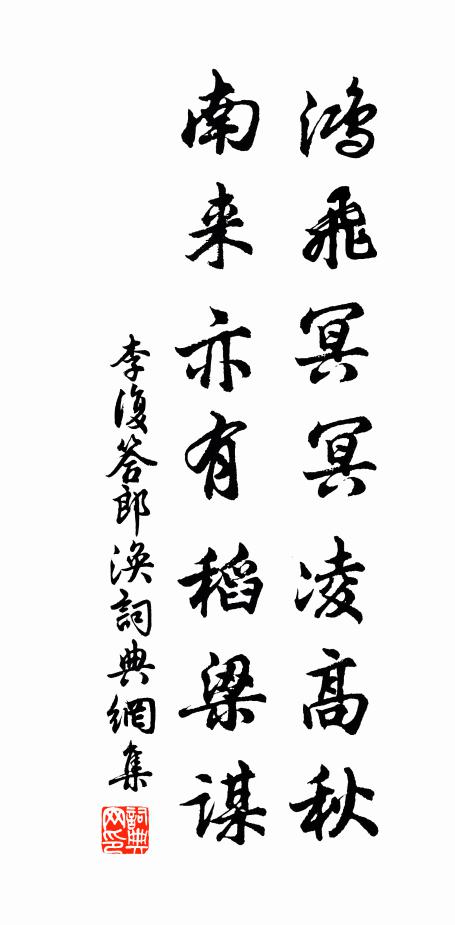 鸿飛冥冥凌高秋
南来亦有稻梁谋
李復荅郎渙詞典網集
詞典网印